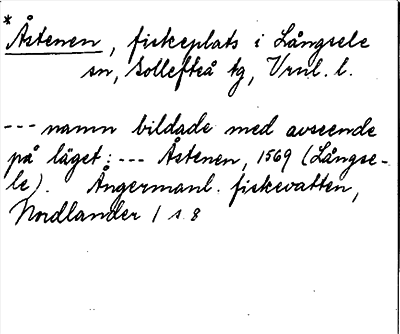 * Åstenen, fiskeplats i Långsele
sn, Sollefteå tg, Vrnl. l.
--- namn bildade med avseende
på läget: --- Åstenen, 1569 (Långse-
le). Ångermanl. fiskevatten,
Nordlander 1 s. 8